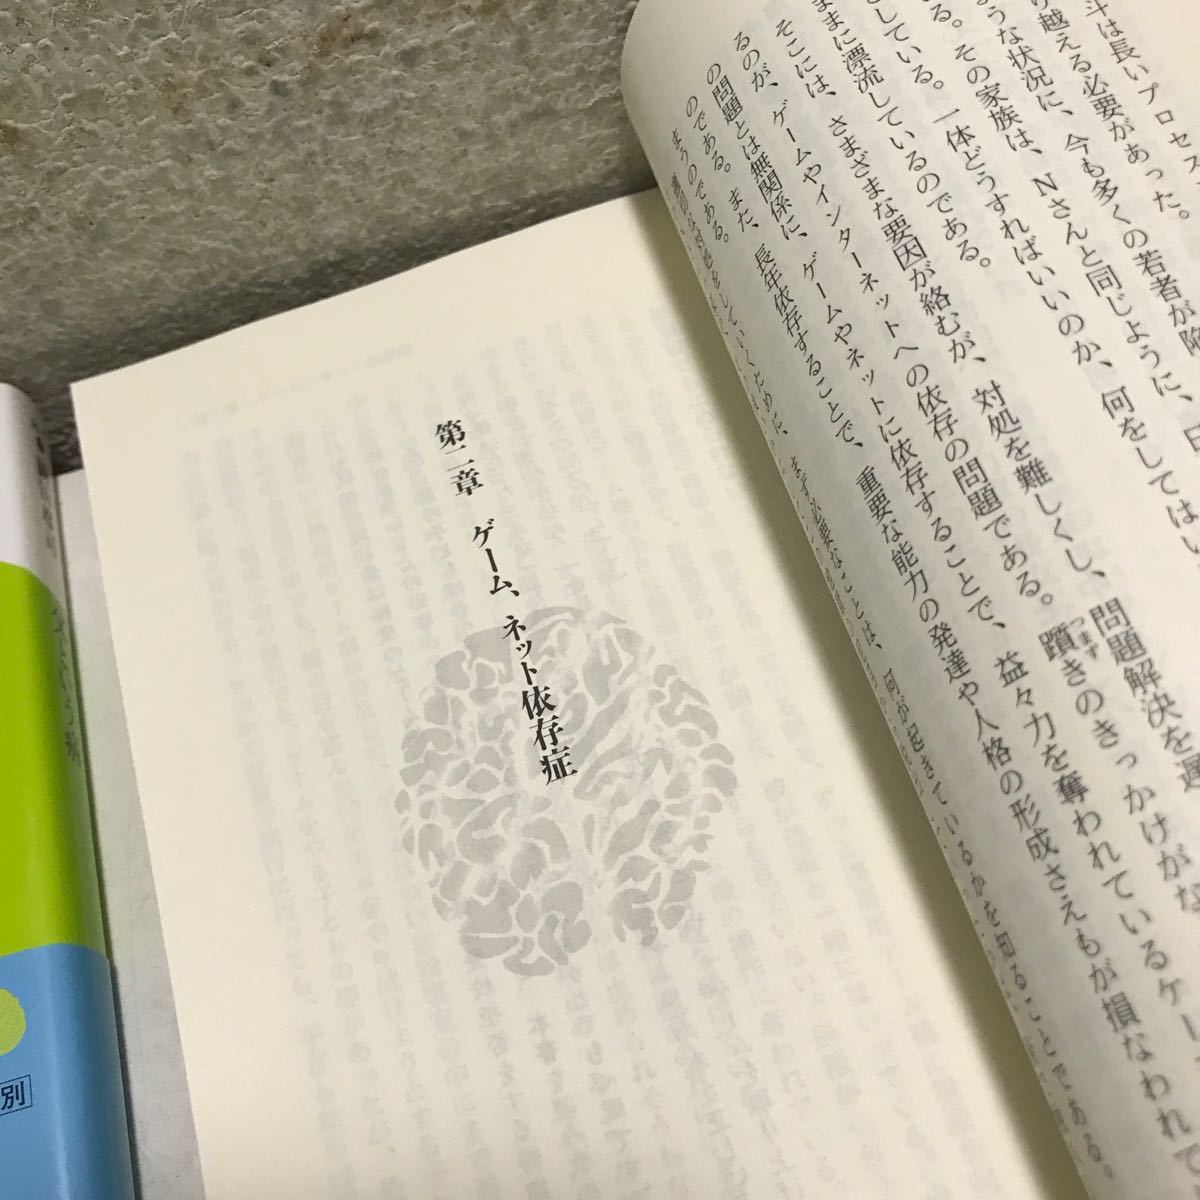 は長いプロセス
り越える必要があった。
ような状況に、今も多くの若者が陥
る。その家族は、Nさんと同じように、
としている。一体どうすればいいのか、何をしてはい
ままに漂流しているのである。
そこには、さまざまな要因が絡むが、対処を難しくし、問題解決を遅
るのが、ゲームやインターネットへの依存の問題である。躓きのきっかけがな
つまず
の問題とは無関係に、ゲームやネットに依存することで、益々力を奪われているケー
のである。また、長年依存することで、重要な能力の発達や人格の形成さえもが損なわれて
まうのである。
をしていくために、まず必要なことは、何が起きているかを知ることである。
第二章 ゲーム、ネット依存症
という病
別